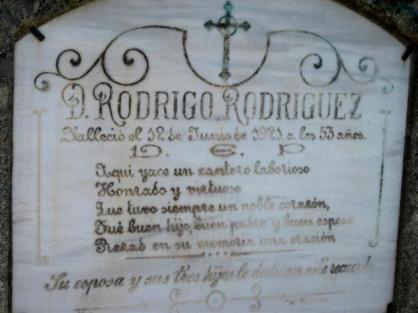 D. RODRIGO RODRIGUEZ
Falleció el 12 de Junio de 1921 a los 53 años.
D. E. P
Aqui yace un cantero laborioso
Honrado y virtuoso
Que tuvo siempre un noble corazón,
Fué buen hijo, buen padre y buen esposo
Rezad en su memoria una oración
Su esposa y sus tres hijos le dedican este recuerdo